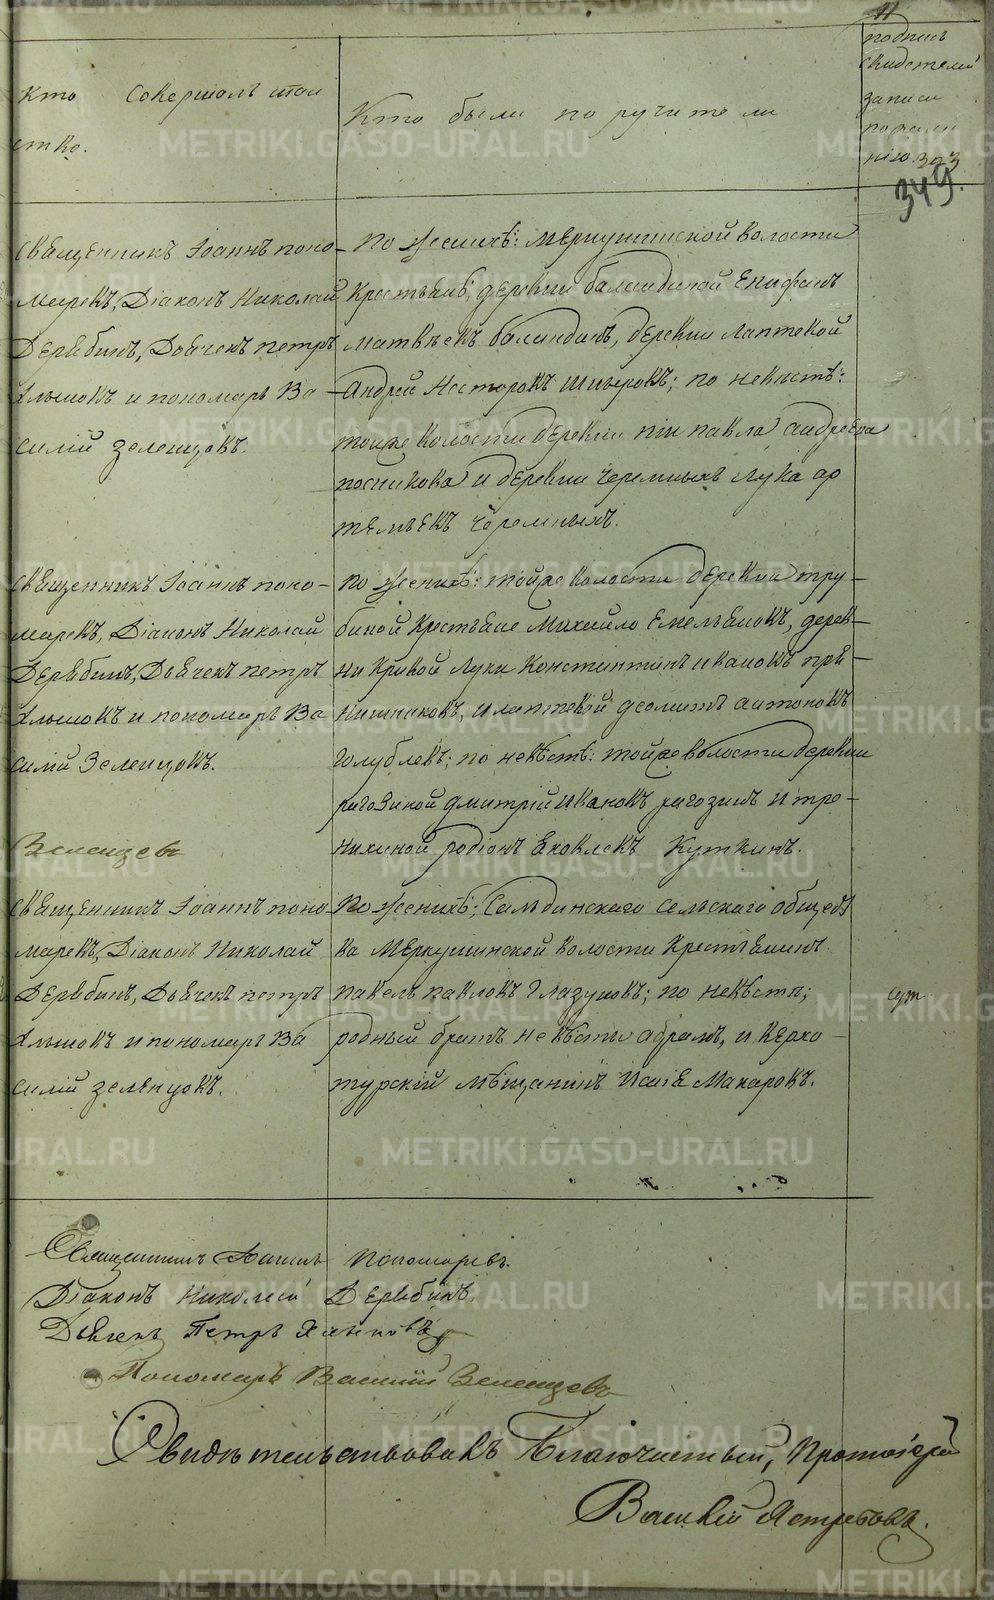 11
Кто совершалъ таин
ство.
Кто были поручители
подпись
свидетелей
записи
по жела
нію. 393
349.
Священникъ Іоаннъ поно-
маревъ, Діаконъ Николай
Дерябинъ, Дьячекъ петръ
Хлыновъ и пономарь Ва-
силій зеленцовъ.
По женихѣ: Меркушинской волости
Крестьяне, деревни баландиной Епифанъ
матвѣевъ баландинъ, деревни Лаптевой
Андрей Несторовъ Шныровъ; по невѣстѣ:
тойже волости деревни піи павла андреева
постникова и деревни Черемныхъ Лука ар
темьевъ Черемныхъ.
Священникъ Іоаннъ поно-
маревъ, Діаконъ Николай
Дерябинъ, Дьячекъ петръ
Хлыновъ и пономарь Ва
силій Зеленцовъ.
По женихѣ: тойже волости деревни тру-
биной Крестьяне Михайло Емельяновъ, дерев-
ни Кривой Луки Константинъ ивановъ пря-
нишниковъ, и лаптевой феоктистъ антоновъ
Голублевъ; по невѣстѣ: тойже волости деревни
рагозиной дмитрій ивановъ рагозинъ и тре-
нихиной родіонъ Яковлевъ Куткинъ.
Зеленцовъ
Священникъ Іоаннъ поно-
маревъ, Діаконъ Николай
Дерябинъ, Дьячекъ петръ
Хлыновъ и пономарь Ва
силій зеленцовъ.
По женихѣ; Салдинскаго сельскаго общест
ва Меркушинской волости Крестьянинъ
павелъ павловъ Глазуновъ; по невѣсты;
родный братъ невѣсты абрамъ, и верхо-
турскій мѣщанинъ Исаія Макаровъ.
Священникъ Іоаннъ Пономаревъ.
Діаконъ Николай Дерябинъ.
Дьячекъ Петръ Хлыновъ
Пономарь Василій Зеленцовъ
Свидѣтельствовалъ Благочинный, Протоіерей
Василій Ястребовъ.